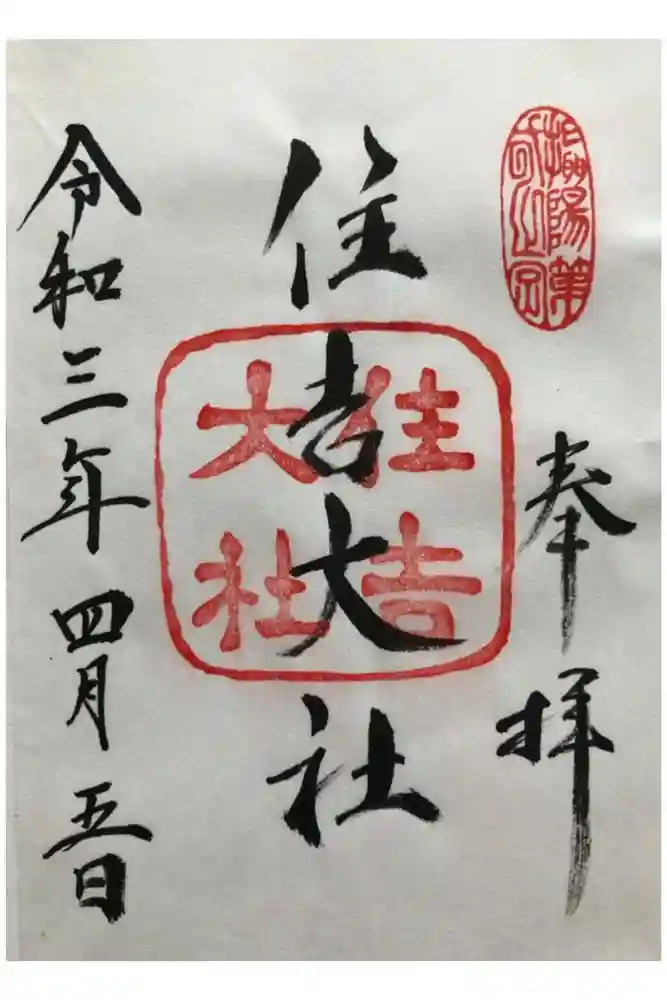 陽第
之宮
奉拝
住吉大社
住吉
大社
令和三年四月五日